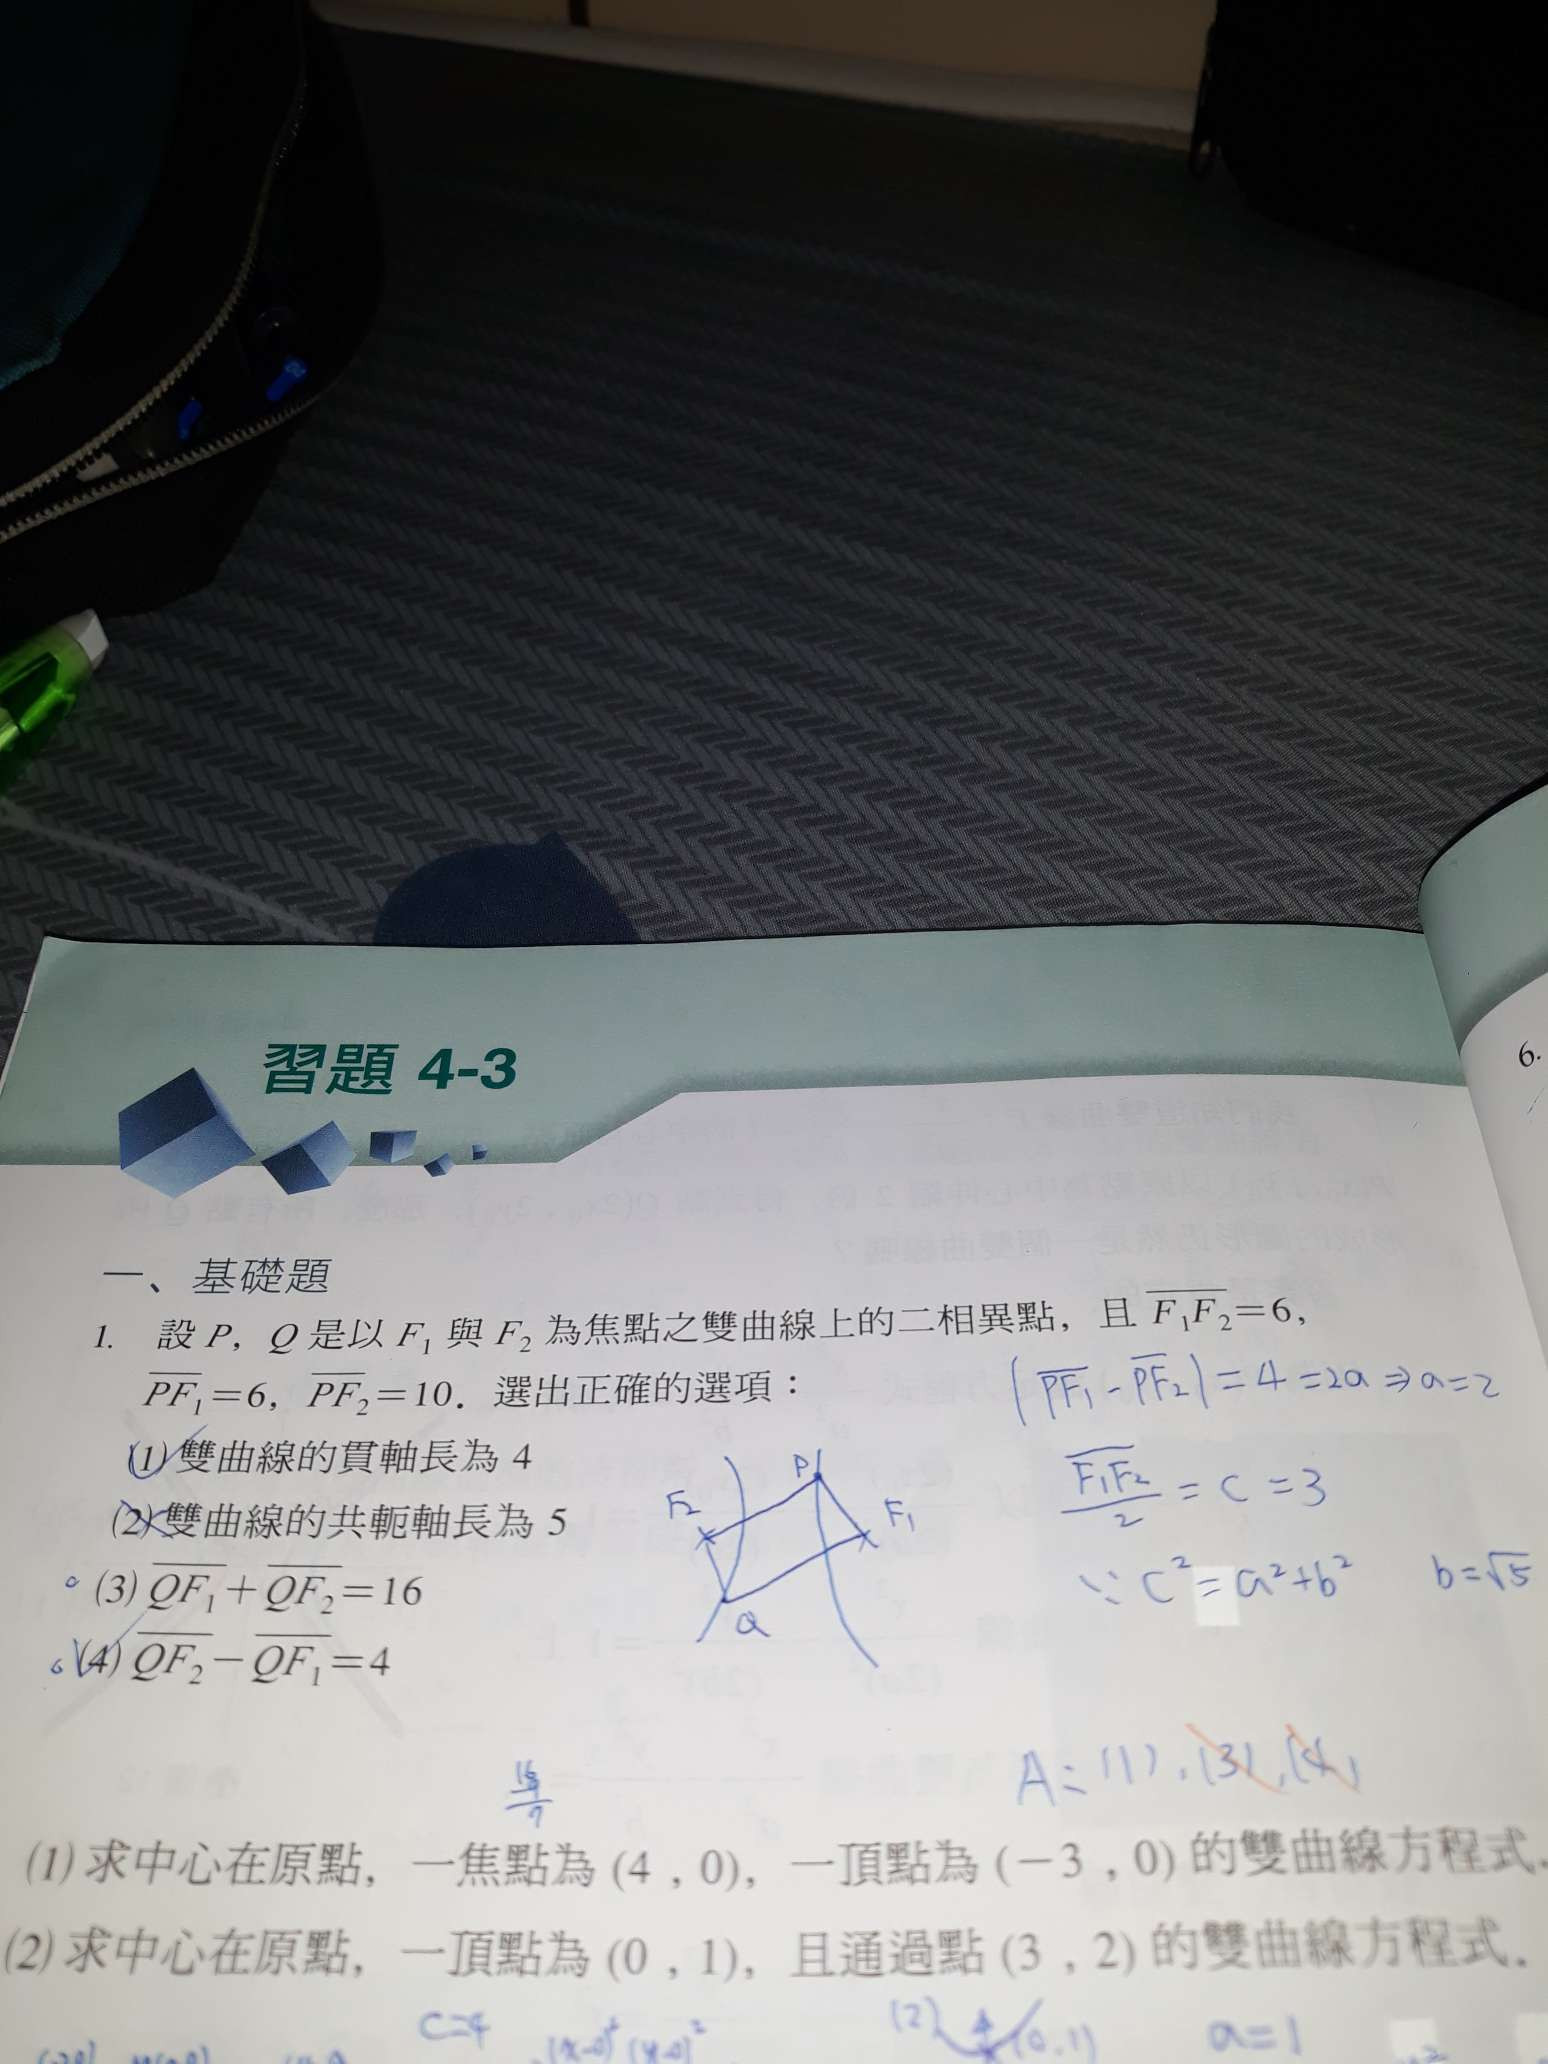 習題 4-3
6.
一、基礎題
1. 設 P，Q 是以 F₁ 與 F₂ 為焦點之雙曲線上的二相異點，且 F₁F₂=6，
PF₁=6，PF₂=10．選出正確的選項：
|PF₁-PF₂|=4=2a⇒a=2
(1)雙曲線的貫軸長為 4
(2)雙曲線的共軛軸長為 5
(3) QF₁+QF₂=16
(4) QF₂-QF₁=4
F₂ P F₁
Q
F₁F₂/2 = c = 3
∵ c²=a²+b² b=√5
A=(1),(3),(4)
(1)求中心在原點，一焦點為 (4，0)，一頂點為 (-3，0) 的雙曲線方程式．
(2)求中心在原點，一頂點為 (0，1)，且通過點 (3，2) 的雙曲線方程式．
c=4
(2) (0,1) a=1